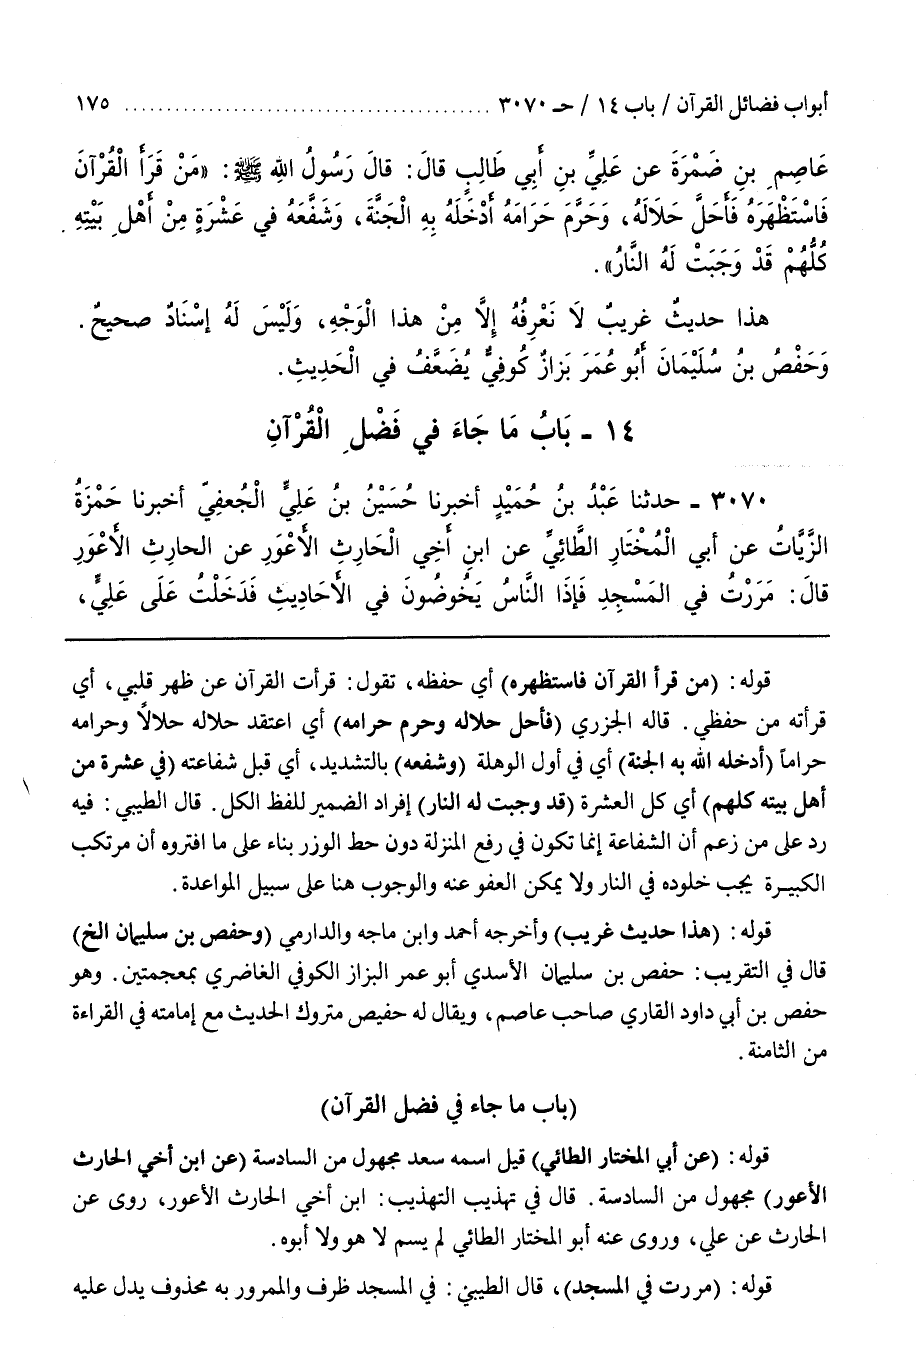 أبواب فضائل القرآن / باب ١٤ / حـ ٣٠٧٠ ............................................ ١٧٥
عَاصِمِ بنِ ضَمْرَةَ عن عَلِيِّ بنِ أَبِي طَالِبٍ قالَ: قالَ رَسُولُ الله ﷺ: «مَنْ قَرَأَ الْقُرْآنَ
فَاسْتَظْهَرَهُ فَأَحَلَّ حَلَالَهُ، وَحَرَّمَ حَرَامَهُ أَدْخَلَهُ بِهِ الْجَنَّةَ، وَشَفَّعَهُ في عَشْرَةٍ مِنْ أَهْلِ بَيْتِهِ
كُلُّهُمْ قَدْ وَجَبَتْ لَهُ النَّارُ».
هذا حديثٌ غريبٌ لَا نَعْرِفُهُ إلَّا مِنْ هذا الْوَجْهِ، وَلَيْسَ لَهُ إسْنَادٌ صحيحٌ.
وَحَفْصُ بنُ سُلَيْمَانَ أَبُو عُمَرَ بَزازٌ كُوفِيٌّ يُضَعَّفُ في الْحَدِيثِ.
١٤ ـ بَابُ مَا جَاءَ في فَضْلِ الْقُرْآنِ
٣٠٧٠ ـ حدثنا عَبْدُ بنُ حُمَيْدٍ أخبرنا حُسَيْنُ بنُ عَلِيٍّ الْجُعفِيّ أخبرنا حَمْزَةُ
الزَّيَّاتُ عن أبي الْمُخْتَارِ الطَّائِيِّ عن ابنِ أَخِي الْحَارِثِ الأَعْوَرِ عن الحارِثِ الأَعْوَرِ
قالَ: مَرَرْتُ في المَسْجِدِ فَإِذَا النَّاسُ يَخُوضُونَ في الأَحَادِيثِ فَدَخَلْتُ عَلَى عَلِيٍّ،
قوله: (من قرأ القرآن فاستظهره) أي حفظه، تقول: قرأت القرآن عن ظهر قلبي، أي
قرأته من حفظي. قاله الجزري (فأحل حلاله وحرم حرامه) أي اعتقد حلاله حلالاً وحرامه
حراماً (أدخله الله به الجنة) أي في أول الوهلة (وشفعه) بالتشديد، أي قبل شفاعته (في عشرة من
أهل بيته كلهم) أي كل العشرة (قد وجبت له النار) إفراد الضمير للفظ الكل. قال الطيبي: فيه
رد على من زعم أن الشفاعة إنما تكون في رفع المنزلة دون حط الوزر بناء على ما افتروه أن مرتكب
الكبيرة يجب خلوده في النار ولا يمكن العفو عنه والوجوب هنا على سبيل المواعدة.
قوله: (هذا حديث غريب) وأخرجه أحمد وابن ماجه والدارمي (وحفص بن سليمان الخ)
قال في التقريب: حفص بن سليمان الأسدي أبو عمر البزاز الكوفي الغاضري بمعجمتين. وهو
حفص بن أبي داود القاري صاحب عاصم، ويقال له حفيص متروك الحديث مع إمامته في القراءة
من الثامنة.
(باب ما جاء في فضل القرآن)
قوله: (عن أبي المختار الطائي) قيل اسمه سعد مجهول من السادسة (عن ابن أخي الحارث
الأعور) مجهول من السادسة. قال في تهذيب التهذيب: ابن أخي الحارث الأعور، روى عن
الحارث عن علي، وروى عنه أبو المختار الطائي لم يسم لا هو ولا أبوه.
قوله: (مررت في المسجد)، قال الطيبي: في المسجد ظرف والمرور به محذوف يدل عليه